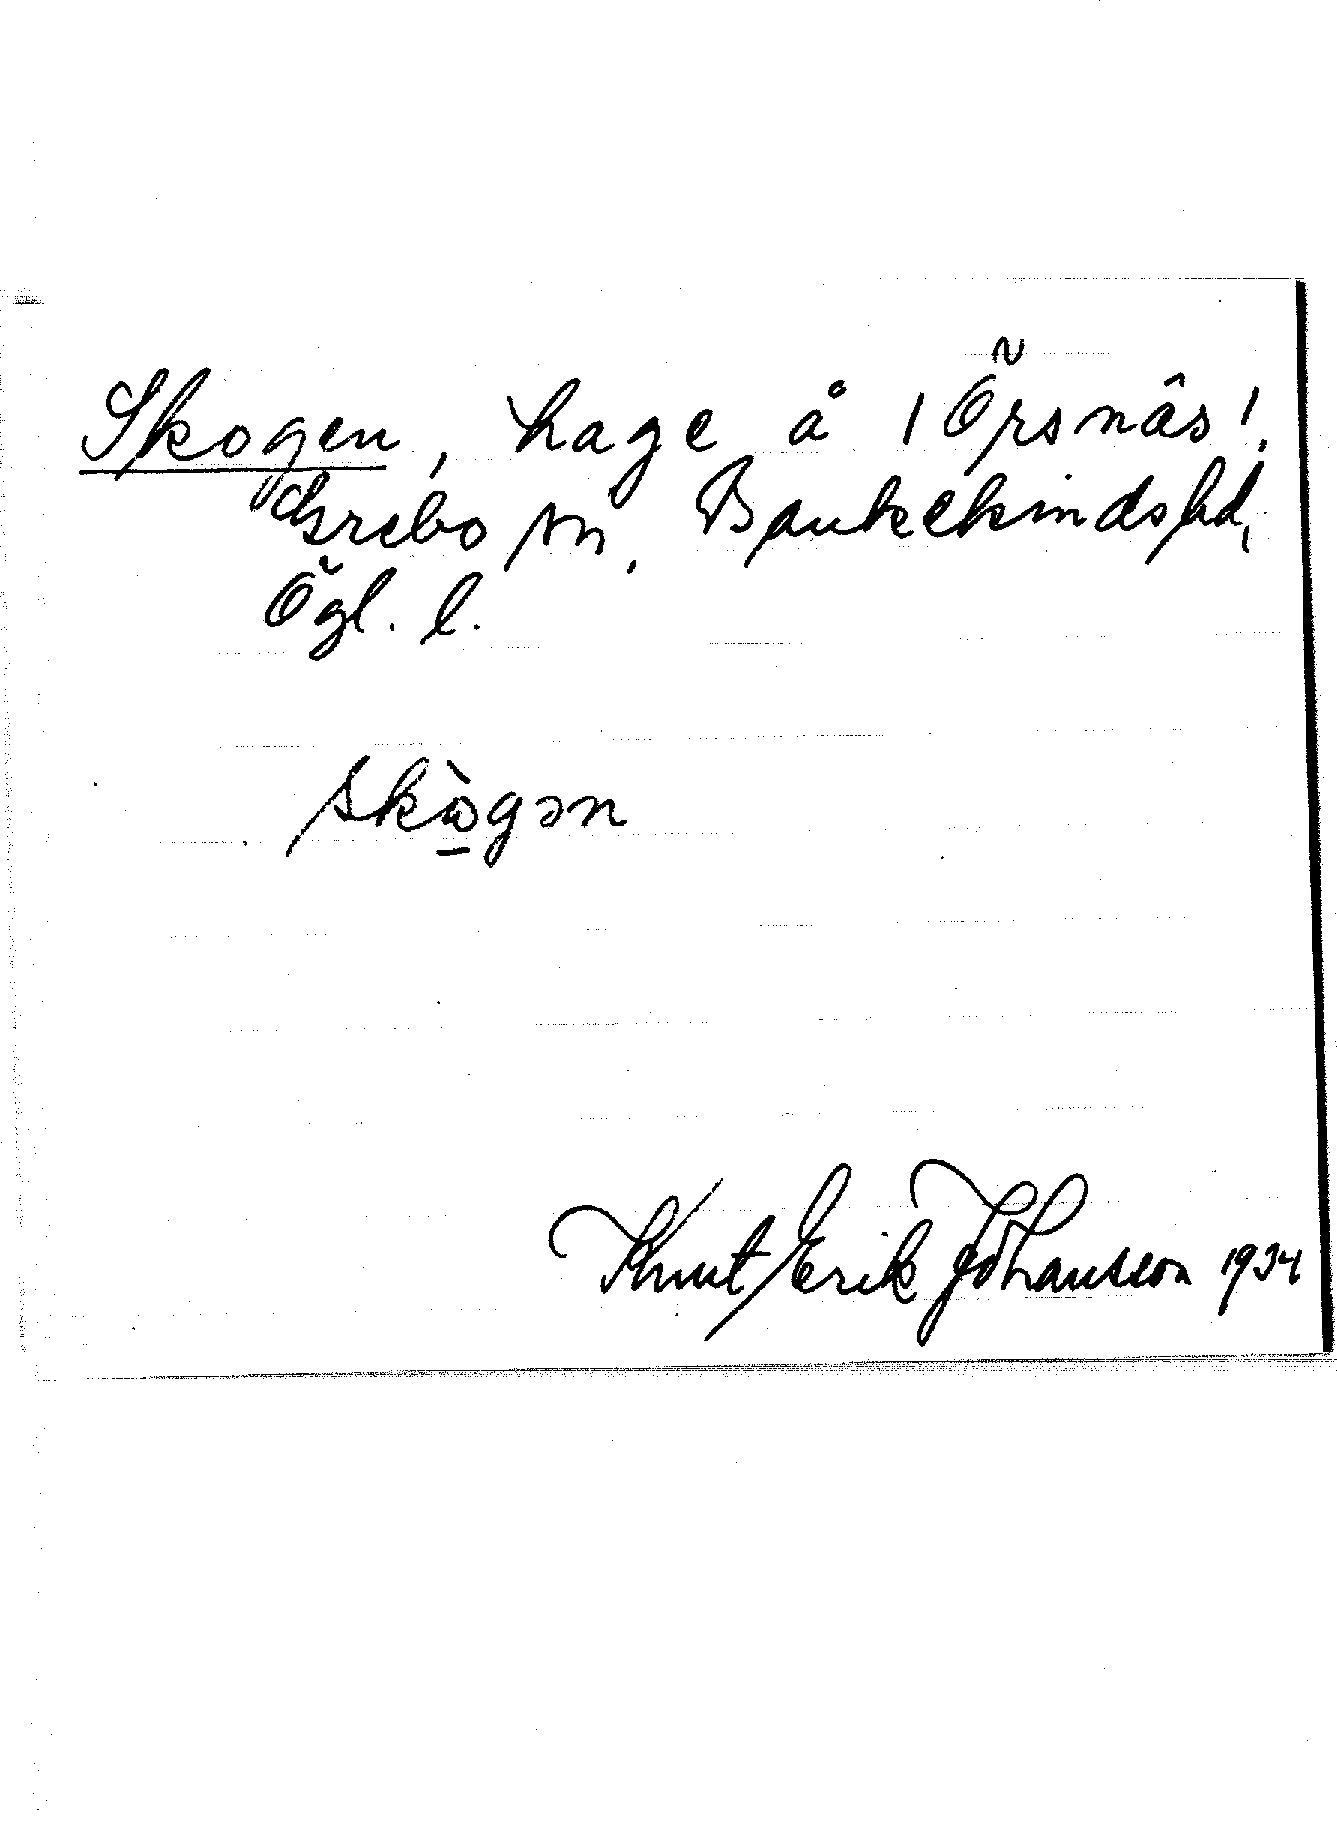 Skogen, hage å / Örsnäs /,
Grebo sn, Bankekinds hd,
Ögl. l.
skògən
Knut Erik Johansson 1934